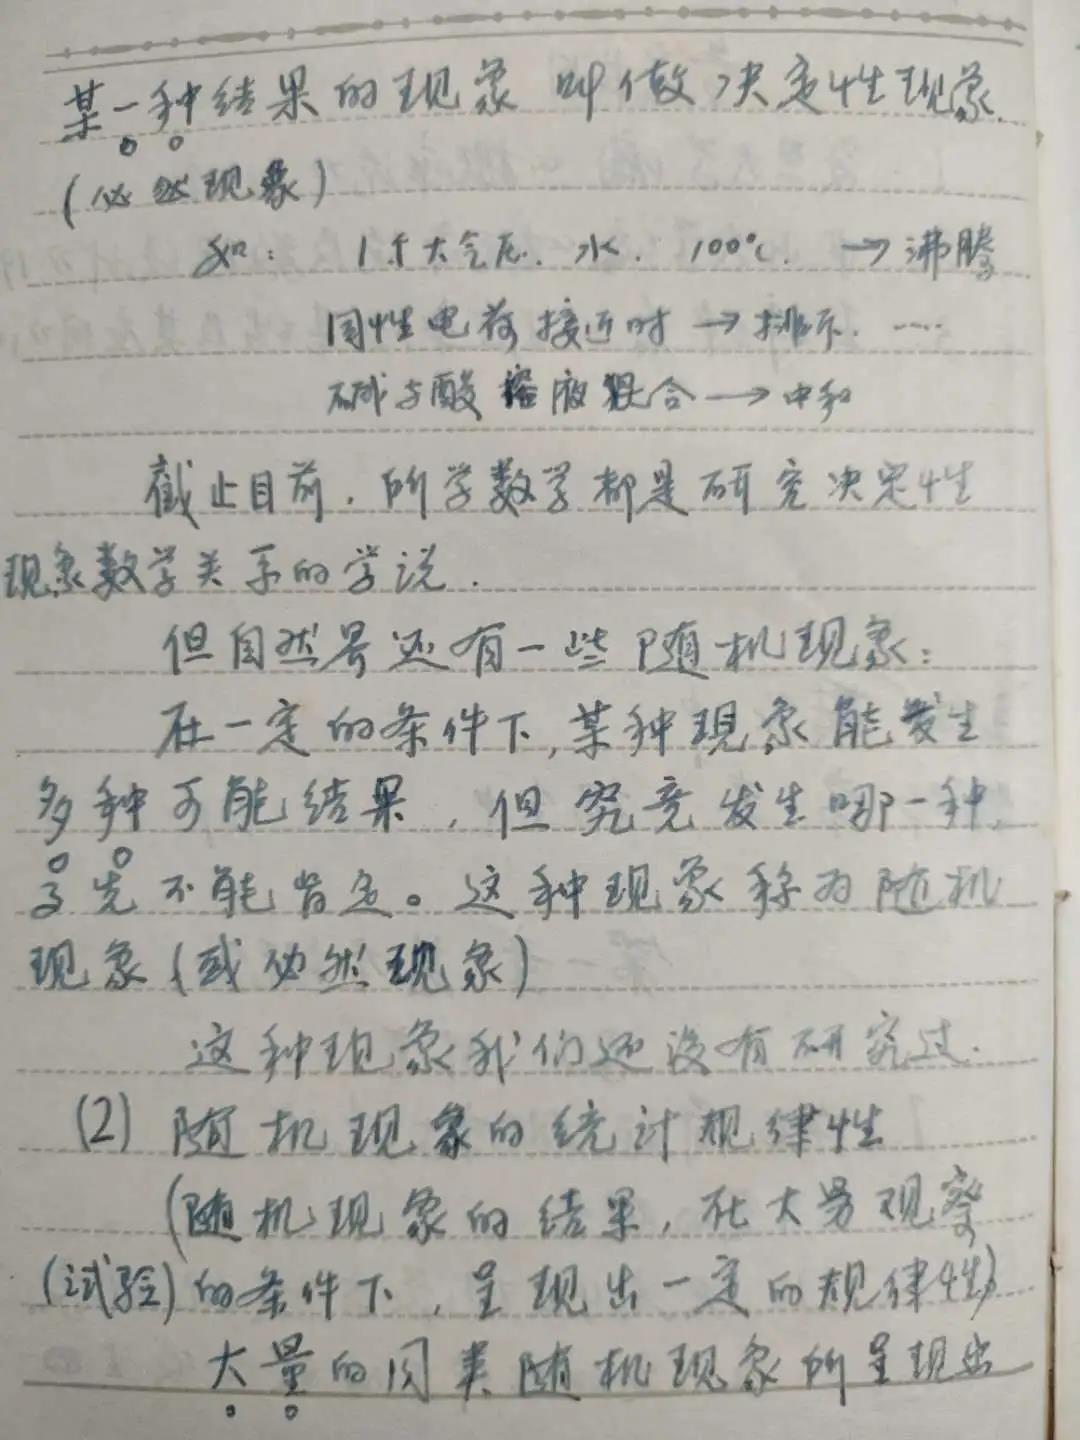 某一种结果的现象 叫做决定性现象.
(必然现象)
如: 1个大气压. 水. 100℃. → 沸腾
同性电荷接近时 → 排斥. ……
碱与酸溶液混合 → 中和
截止目前, 所学数学都是研究决定性
现象数学关系的学说.
但自然界还有一些随机现象:
在一定的条件下, 某种现象能发生
多种可能结果, 但究竟发生哪一种,
事先不能肯定。这种现象称为随机
现象(或必然现象)
这种现象我们还没有研究过.
(2) 随机现象的统计规律性
(随机现象的结果, 在大量观察
(试验)的条件下, 呈现出一定的规律性)
大量的同类随机现象所呈现出